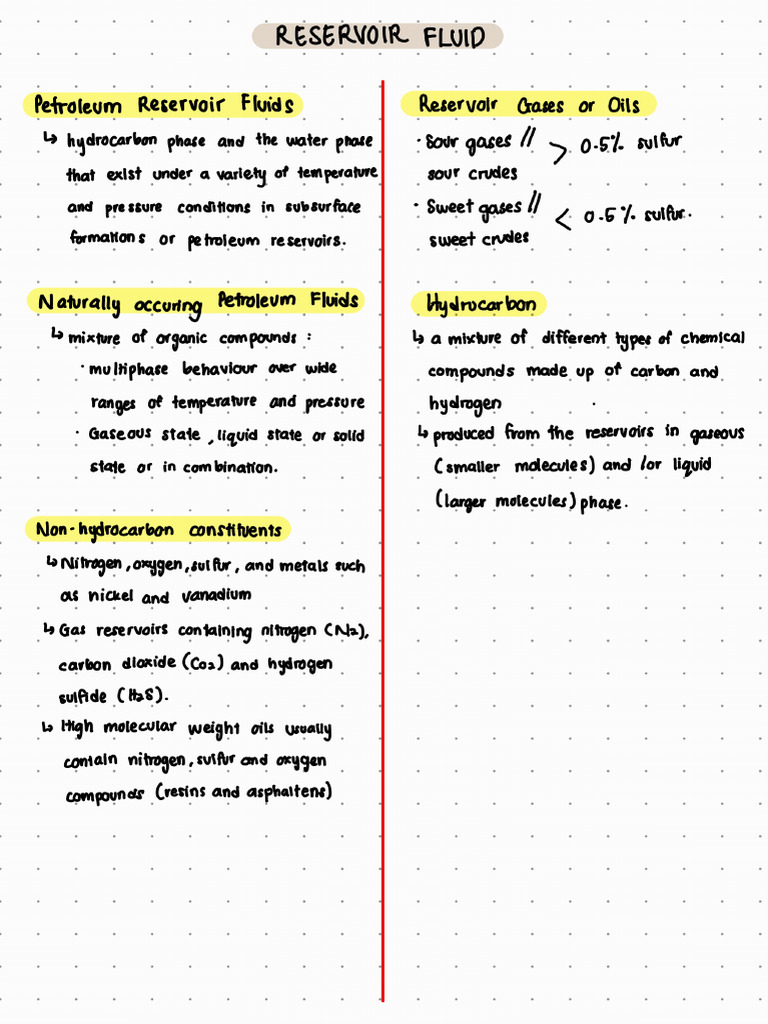 RESERVOIR FLUID
Petroleum Reservoir Fluids
↳ hydrocarbon phase and the water phase
that exist under a variety of temperature
and pressure conditions in subsurface
formations or petroleum reservoirs.
Naturally occuring Petroleum Fluids
↳ mixture of organic compounds :
· multiphase behaviour over wide
ranges of temperature and pressure
· Gaseous state , liquid state or solid
state or in combination.
Non-hydrocarbon constituents
↳ Nitrogen, oxygen, sulfur, and metals such
as nickel and vanadium
↳ Gas reservoirs containing nitrogen (N₂),
carbon dioxide (CO₂) and hydrogen
sulfide (H₂S).
↳ High molecular weight oils usually
contain nitrogen, sulfur and oxygen
compounds (resins and asphaltens)
Reservoir Gases or Oils
· Sour gases // > 0.5% sulfur
sour crudes
· Sweet gases // < 0.5% sulfur.
sweet crudes
Hydrocarbon
↳ a mixture of different types of chemical
compounds made up of carbon and
hydrogen
↳ produced from the reservoirs in gaseous
(smaller molecules) and /or liquid
(larger molecules) phase.